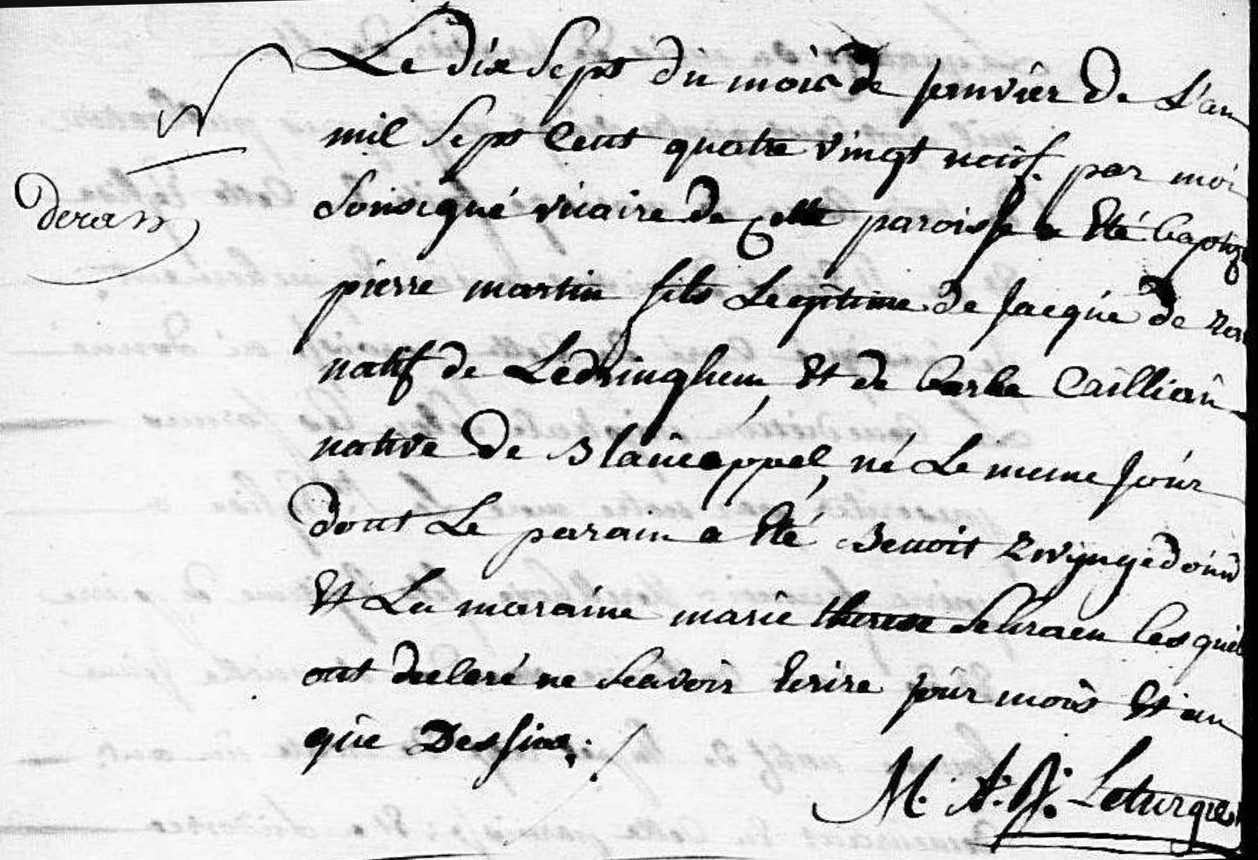 N
deram
Le dix Sept du mois de janvier de L'an
mil Sept Cent quatre vingt neuf. par moi
Sousigné vicaire de Cette paroisse a Eté baptizé
pierre martin fils Legitime de Jacque de
natif de Ledringhem, Et de barbe Cailliau
native de Blancappel, né Le meme jour
dont Le parain a Eté Benoit
Et La maraine marie therese lesquels
ont declaré ne Scavoir Ecrire jour mois Et an
que Dessus./
M. A. J. Leturque